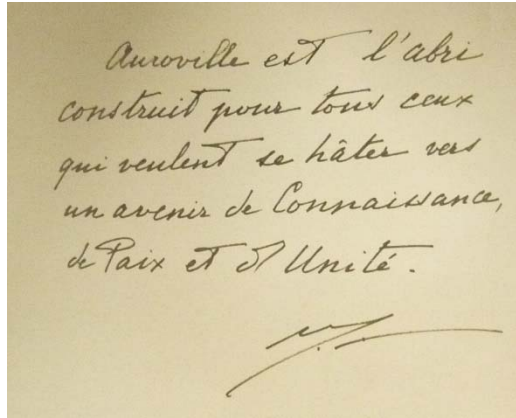 Auroville est l'abri
construit pour tous ceux
qui veulent se hâter vers
un avenir de Connaissance,
de Paix et d'Unité.